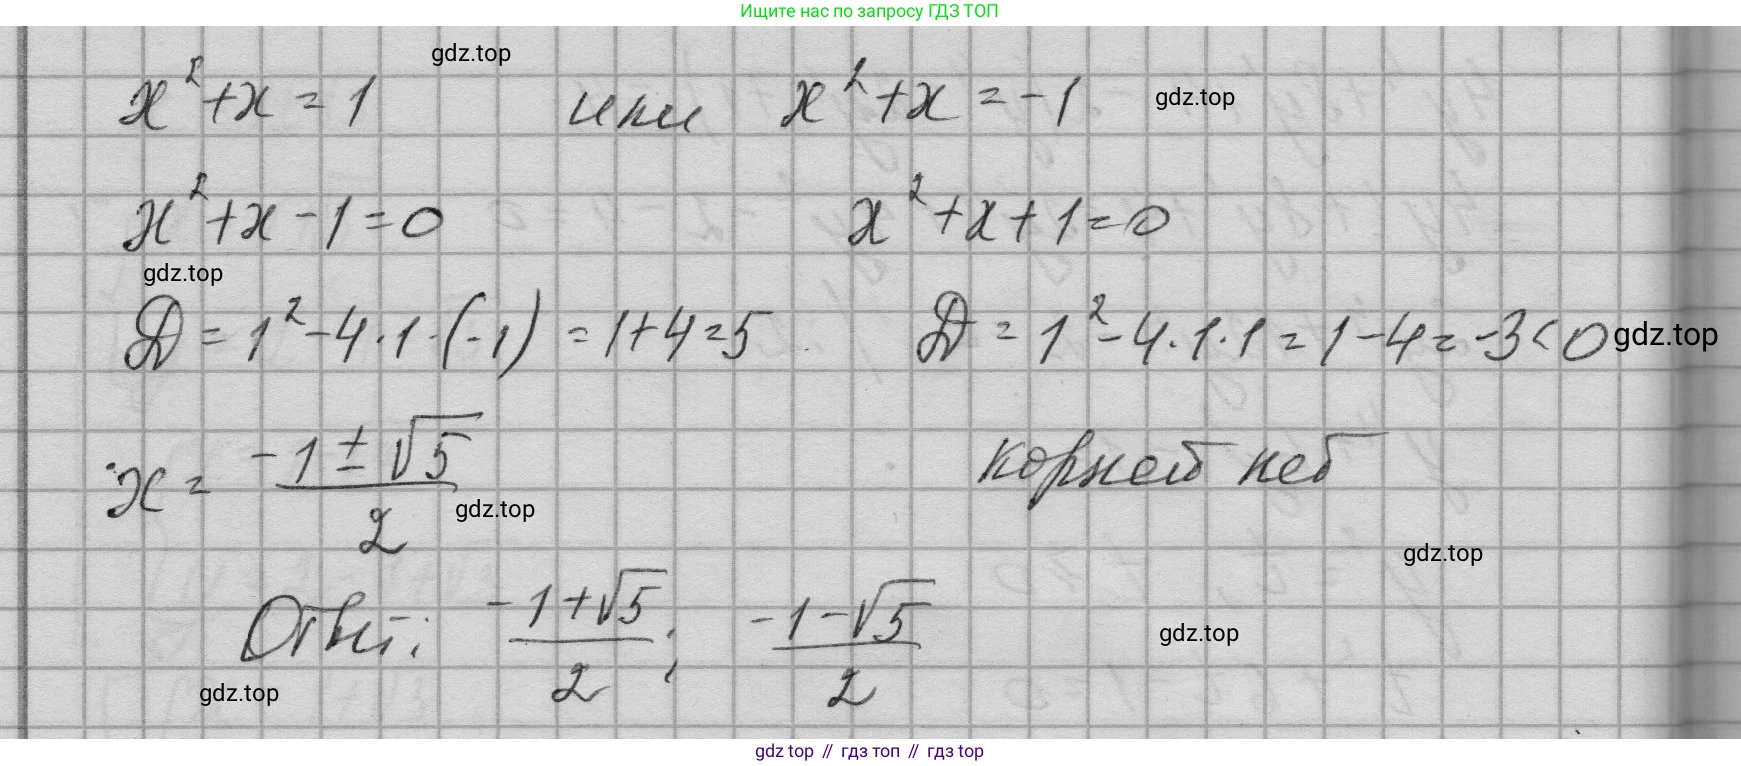 Ищите нас по запросу ГДЗ ТОП
gdz.top
x² + x = 1 или x² + x = -1 gdz.top
x² + x - 1 = 0 x² + x + 1 = 0
gdz.top
Д = 1² - 4·1·(-1) = 1 + 4 = 5 Д = 1² - 4·1·1 = 1 - 4 = -3 < 0 gdz.top
x = (-1 ± √5)/2 корней нет
gdz.top
gdz.top
Ответ: (-1 + √5)/2; (-1 - √5)/2 gdz.top
gdz.top
gdz.top // гдз топ // гдз top